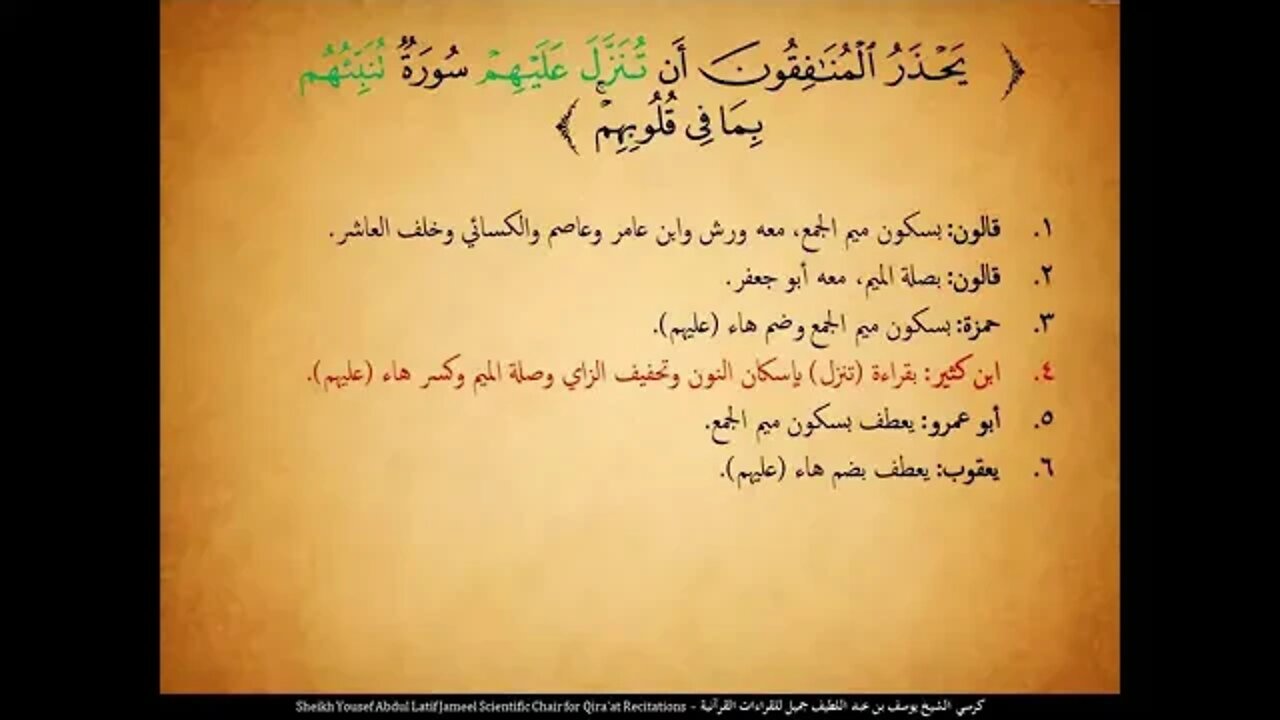 ﴿ يَحْذَرُ ٱلْمُنَٰفِقُونَ أَن تُنَزَّلَ عَلَيْهِمْ سُورَةٌ تُنَبِّئُهُم
بِمَا فِى قُلُوبِهِمْ ۚ ﴾
١. قالون: بسكون ميم الجمع، معه ورش وابن عامر وعاصم والكسائي وخلف العاشر.
٢. قالون: بصلة الميم، معه أبو جعفر.
٣. حمزة: بسكون ميم الجمع وضم هاء (عليهم).
٤. ابن كثير: بقراءة (تنزل) بإسكان النون وتخفيف الزاي وصلة الميم وكسر هاء (عليهم).
٥. أبو عمرو: يعطف بسكون ميم الجمع.
٦. يعقوب: يعطف بضم هاء (عليهم).
كرسي الشيخ يوسف بن عبد اللطيف جميل للقراءات القرآنية – Sheikh Yousef Abdul Latif Jameel Scientific Chair for Qira'at Recitations